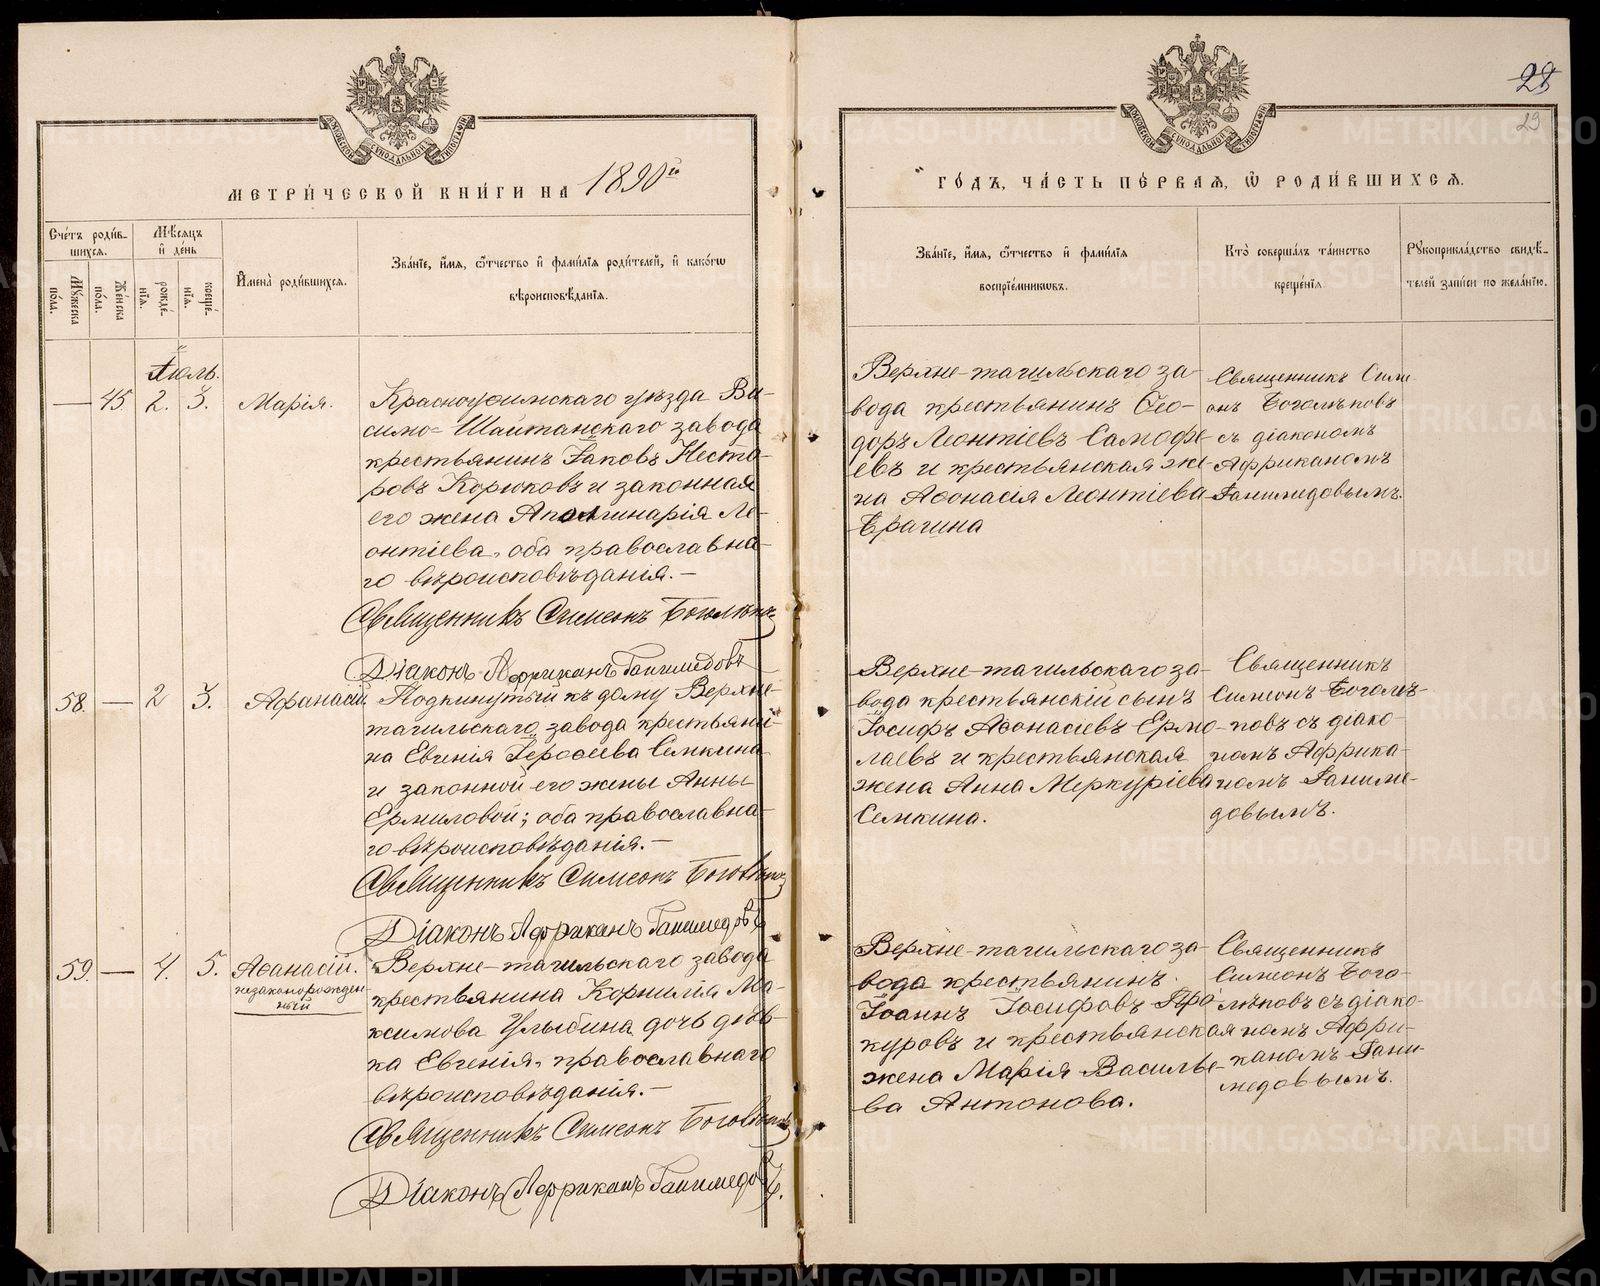 МОСКОВСКОЙ СѴНОДАЛЬНОЙ ТИПОГРАФІИ
МЕТРИ́ЧЕСКОЙ КНИ́ГИ НА 1890й
Сче́тъ роди́в-
шихся.
Мѣсяцъ
и҆ де́нь
Мꙋжеска
по́ла.
Же́нска
по́ла.
рожде́-
нїѧ.
креще́-
нїѧ.
И҆мена̀ роди́вшихсѧ.
Зва́нїе, и҆́мѧ, ѻ҆́тчество и҆ фами́лїѧ роди́телей, и҆ како́гѡ
вѣроисповѣ́данїѧ.
Іюль.
— 45. 2. 3. Марія.
Красноуфимскаго уѣзда Ви-
симо-Шайтанскаго завода
крестьянинъ Іаковъ Несто-
ровъ Корюковъ и законная
его жена Аполлинарія Ле-
онтіева, оба православна-
го вѣроисповѣданія.—
Священникъ Симеонъ Боголѣповъ
Діаконъ Африканъ Ганимедовъ
58. — 2 3. Афанасій.
Подкинутый къ дому Верхне-
тагильскаго завода крестьяни-
на Евгенія Іерофеева Семкина
и законной его жены Анны
Ермиловой; оба православна-
го вѣроисповѣданія.—
Священникъ Симеонъ Боголѣповъ
Діаконъ Африканъ Ганимедовъ
59. — 4. 5. Аѳанасій.
незаконорожден-
ный
Верхне-тагильскаго завода
крестьянина Корнилія Ма-
ксимова Улыбина дочь дѣв-
ка Евгенія, православнаго
вѣроисповѣданія.—
Священникъ Симеонъ Боголѣповъ
Діаконъ Африканъ Ганимедовъ.
28
29
МОСКОВСКОЙ СѴНОДАЛЬНОЙ ТИПОГРАФІИ
ГО́ДЪ, ЧА́СТЬ ПЕ́РВАѦ, Ѡ҆ РОДИ́ВШИХСѦ.
Зва́нїе, и҆́мѧ, ѻ҆́тчество и҆ фами́лїѧ
воспрїе́мниковъ.
Кто̀ соверша́лъ та́инство
креще́нїѧ.
Рꙋкоприкла́дство свидѣ́-
телей за́писи по жела́нїю.
Верхне-тагильскаго за-
вода крестьянинъ Ѳео-
доръ Леонтіевъ Самофе-
евъ и крестьянская же-
на Аѳонасія Леонтіева
Брагина
Священникъ Симе-
онъ Боголѣповъ
съ діакономъ
Африканомъ
Ганимедовымъ.
Верхне-тагильскаго за-
вода крестьянскій сынъ
Іосифъ Аѳонасіевъ Ермо-
лаевъ и крестьянская
жена Анна Меркуріева
Семкина.
Священникъ
Симеонъ Боголѣ-
повъ съ діако-
номъ Африка-
номъ Ганиме-
довымъ.
Верхне-тагильскаго за-
вода крестьянинъ
Іоаннъ Іосифовъ Про-
куровъ и крестьянская
жена Марія Василье-
ва Антонова.
Священникъ
Симеонъ Бого-
лѣповъ съ діако-
номъ Афри-
каномъ Гани-
медовымъ.
METRIKI.GASO-URAL.RU